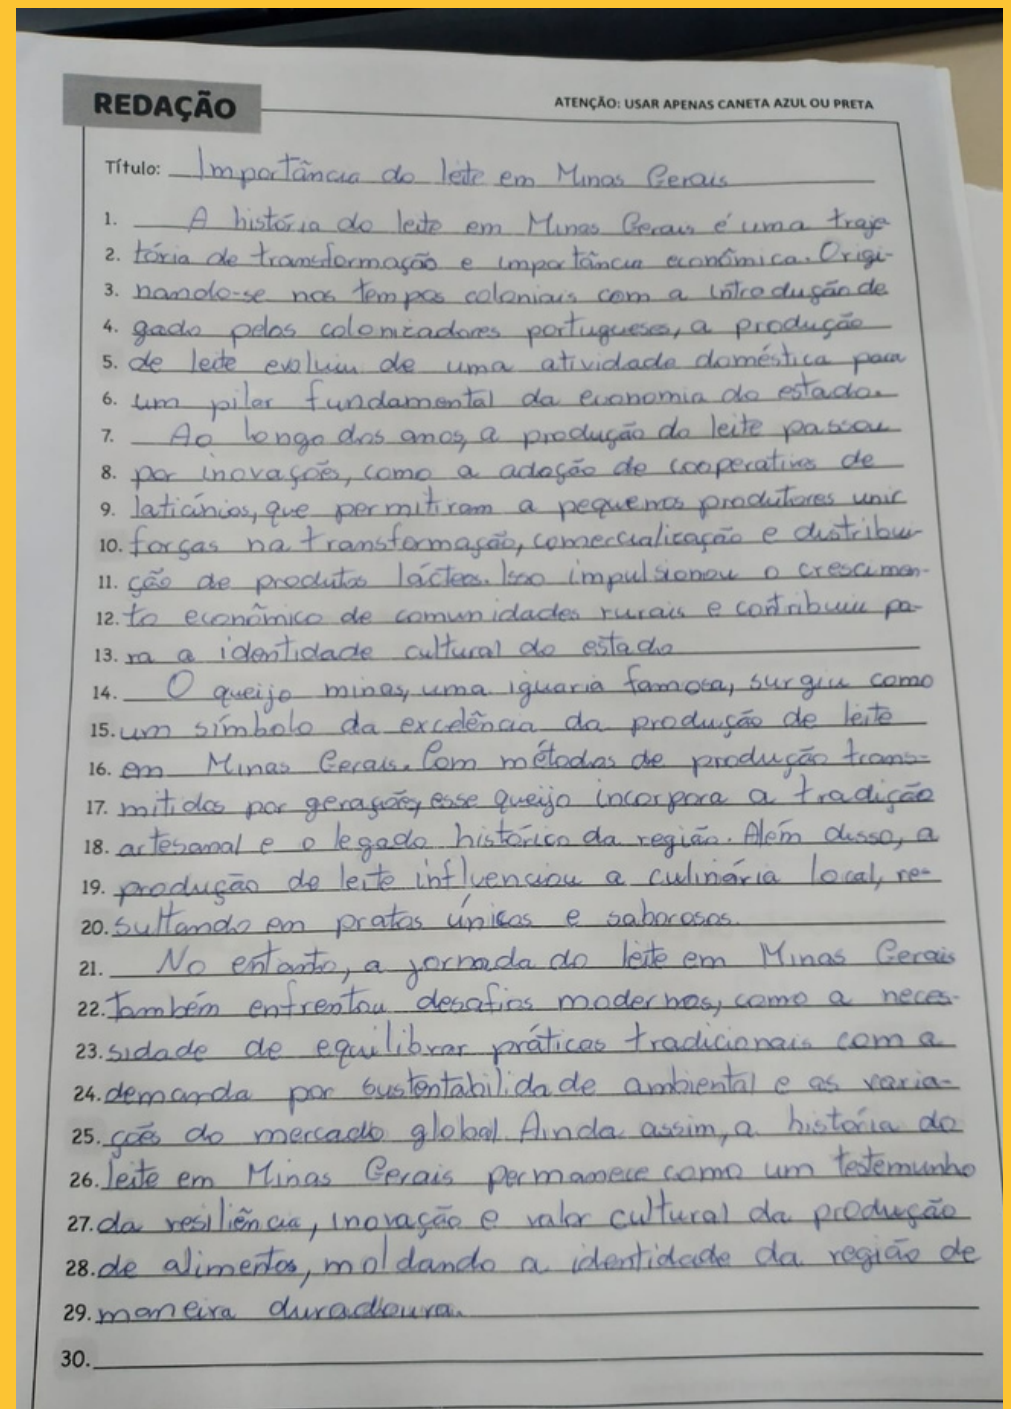 REDAÇÃO
ATENÇÃO: USAR APENAS CANETA AZUL OU PRETA
Título: Importância do leite em Minas Gerais
1. A história do leite em Minas Gerais é uma traje
2. tória de transformação e importância econômica. Origi-
3. nando-se nos tempos coloniais com a introdução de
4. gado pelos colonizadores portugueses, a produção
5. de leite evoluiu de uma atividade doméstica para
6. um pilar fundamental da economia do estado.
7. Ao longo dos anos, a produção do leite passou
8. por inovações, como a adoção de cooperativas de
9. laticínios, que permitiram a pequenos produtores unir
10. forças na transformação, comercialização e distribui-
11. ção de produtos lácteos. Isso impulsionou o crescimen-
12. to econômico de comunidades rurais e contribuiu pa-
13. ra a identidade cultural do estado
14. O queijo minas, uma iguaria famosa, surgiu como
15. um símbolo da excelência da produção de leite
16. em Minas Gerais. Com métodos de produção trans-
17. mitidos por gerações, esse queijo incorpora a tradição
18. artesanal e o legado histórico da região. Além disso, a
19. produção de leite influenciou a culinária local, re-
20. sultando em pratos únicos e saborosos.
21. No entanto, a jornada do leite em Minas Gerais
22. também enfrentou desafios modernos, como a neces-
23. sidade de equilibrar práticas tradicionais com a
24. demanda por sustentabilidade ambiental e as varia-
25. ções do mercado global. Ainda assim, a história do
26. leite em Minas Gerais permanece como um testemunho
27. da resiliência, inovação e valor cultural da produção
28. de alimentos, moldando a identidade da região de
29. maneira duradoura.
30.